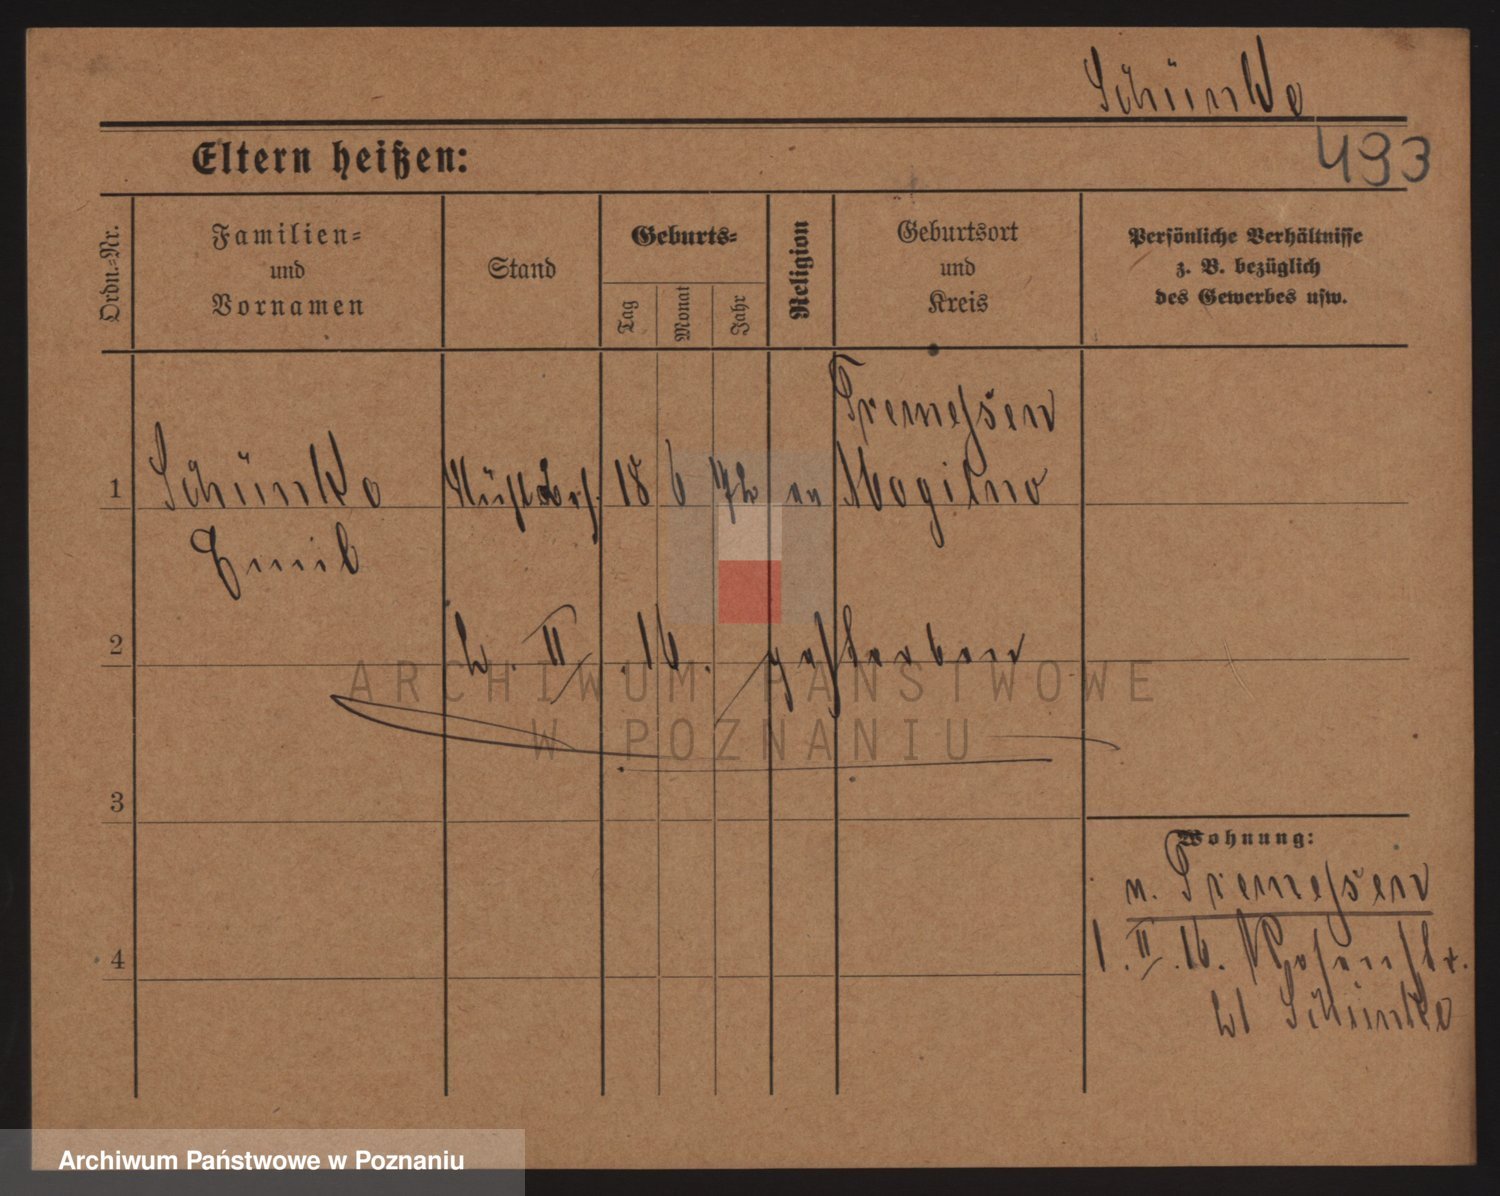 Schünke
493
Eltern heißen:
Ordn.-Nr.
Familien-
und
Vornamen
Stand
Geburts-
Tag
Monat
Jahr
Religion
Geburtsort
und
Kreis
Persönliche Verhältnisse
z. B. bezüglich
des Gewerbes usw.
Tremeßen
1 Schünke 18 6 72 ev Mogilno
Emil
2 2. II. 16. gestorben
ARCHIWUM PAŃSTWOWE
W POZNANIU
3
Wohnung:
n. Tremeßen
4 1. II. 16. Rosenstr.
Schünke
Archiwum Państwowe w Poznaniu